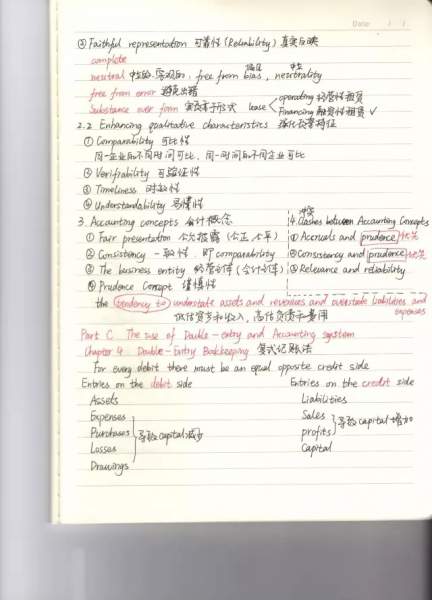 Date / /
② Faithful representation 可靠性 (Reliability) 真实反映
complete
neutral 中性的. 客观的. free from bias, neutrality 偏见 中性
free from error 避免出错
Substance over form 实质重于形式 lease operating 经营性租赁
Financing 融资性租赁 ✓
2.2 Enhancing qualitative characteristics 强化质量特征
① Comparability 可比性
同一企业的不同时间可比, 同一时间的不同企业可比
② Verifiability 可验证性
③ Timeliness 时效性
④ Understandability 易懂性
3. Accounting concepts 会计概念
① Fair presentation 公允披露 (公正、公平)
② Consistency 一致性. 即 comparability
③ The business entity 经营主体 (会计主体)
④ Prudence Concept 谨慎性
冲突
4. Clashes between Accounting Concepts
① Accruals and prudence 优先
② Consistency and prudence 优先
③ Relevance and reliability
the tendency to understate assets and revenues and overstate liabilities and expenses
低估资产和收入, 高估负债和费用
Part C The use of Double-entry and Accounting system
Chapter 4 Double-Entry Bookkeeping 复式记账法
For every debit there must be an equal opposite credit side
Entries on the debit side
Assets
Expenses
Purchases 导致capital减少
Losses
Drawings
Entries on the credit side
Liabilities
Sales
profits 导致capital增加
Capital